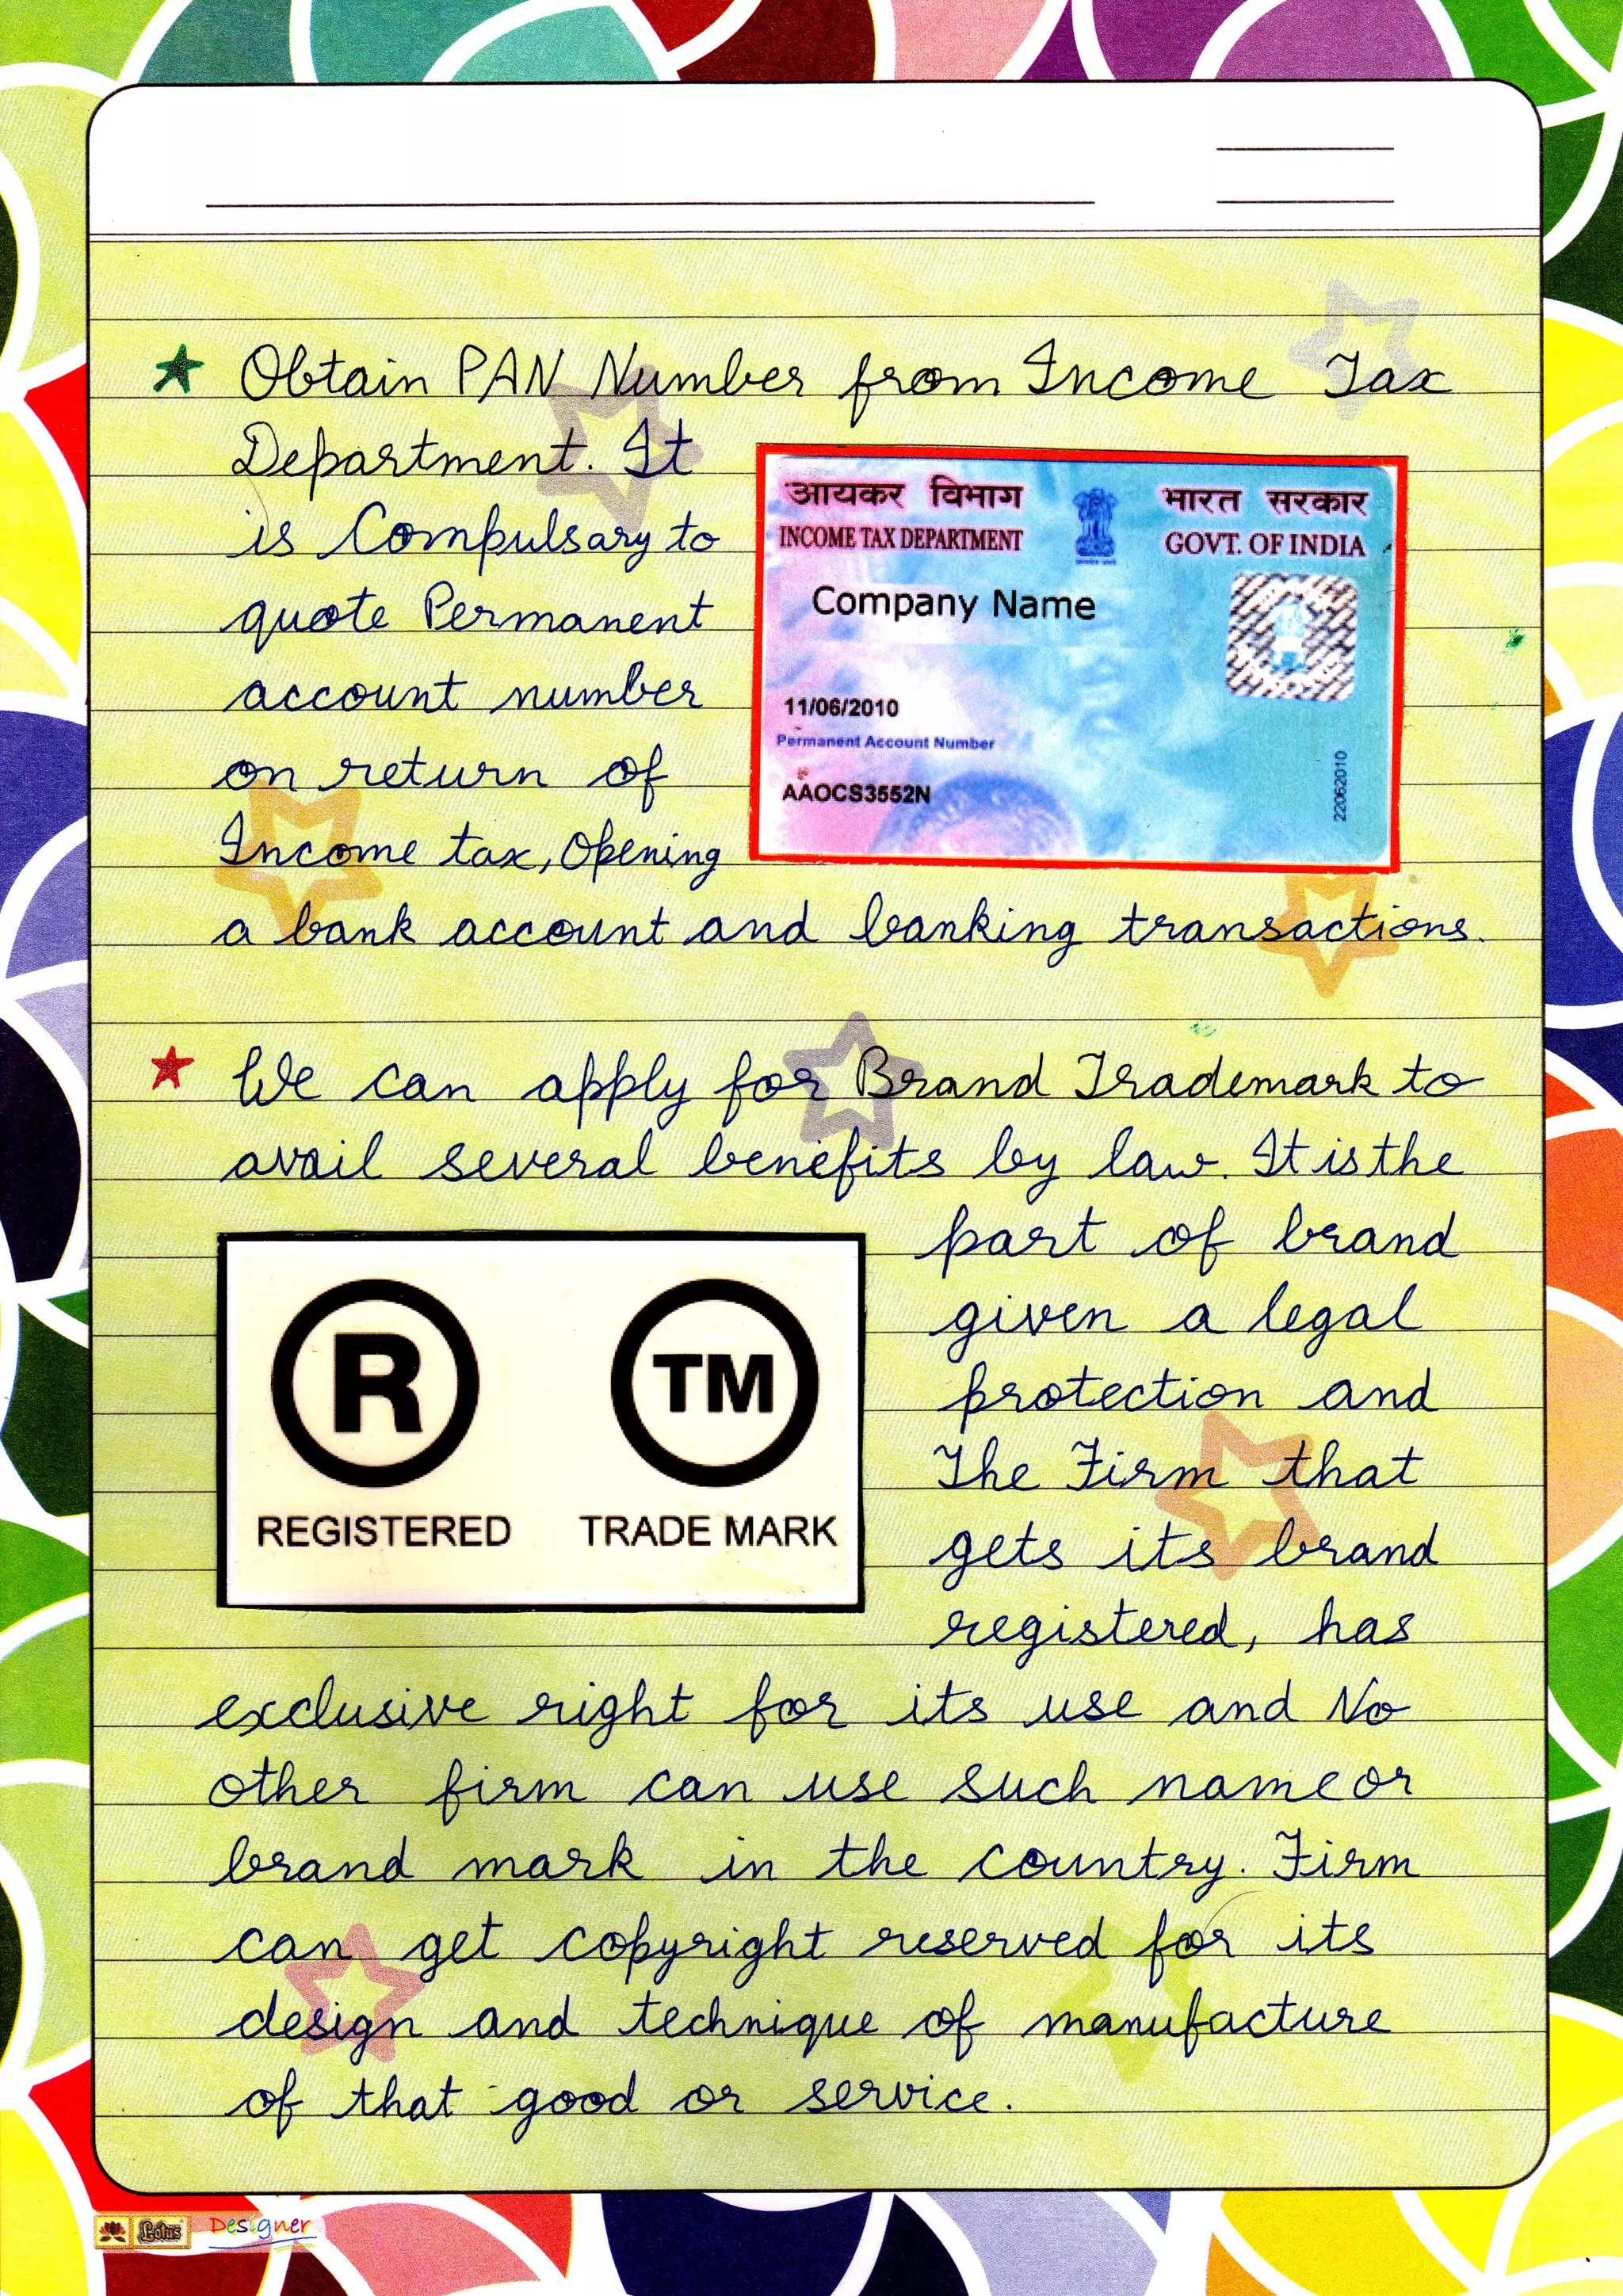 Obtain PAN Number from Income Tax
Department. It
is Compulsary to
quote Permanent
account number
on return of
Income tax, Opening
a bank account and banking transactions.
आयकर विभाग
INCOME TAX DEPARTMENT
भारत सरकार
GOVT. OF INDIA
Company Name
11/06/2010
Permanent Account Number
AAOCS3552N
22062010
We can apply for Brand Trademark to
avail several benefits by law. It is the
part of brand
given a legal
protection and
The Firm that
gets its brand
registered, has
R TM
REGISTERED TRADE MARK
exclusive right for its use and No
other firm can use such name or
brand mark in the country. Firm
can get copyright reserved for its
design and technique of manufacture
of that good or service.
Lotus Designer